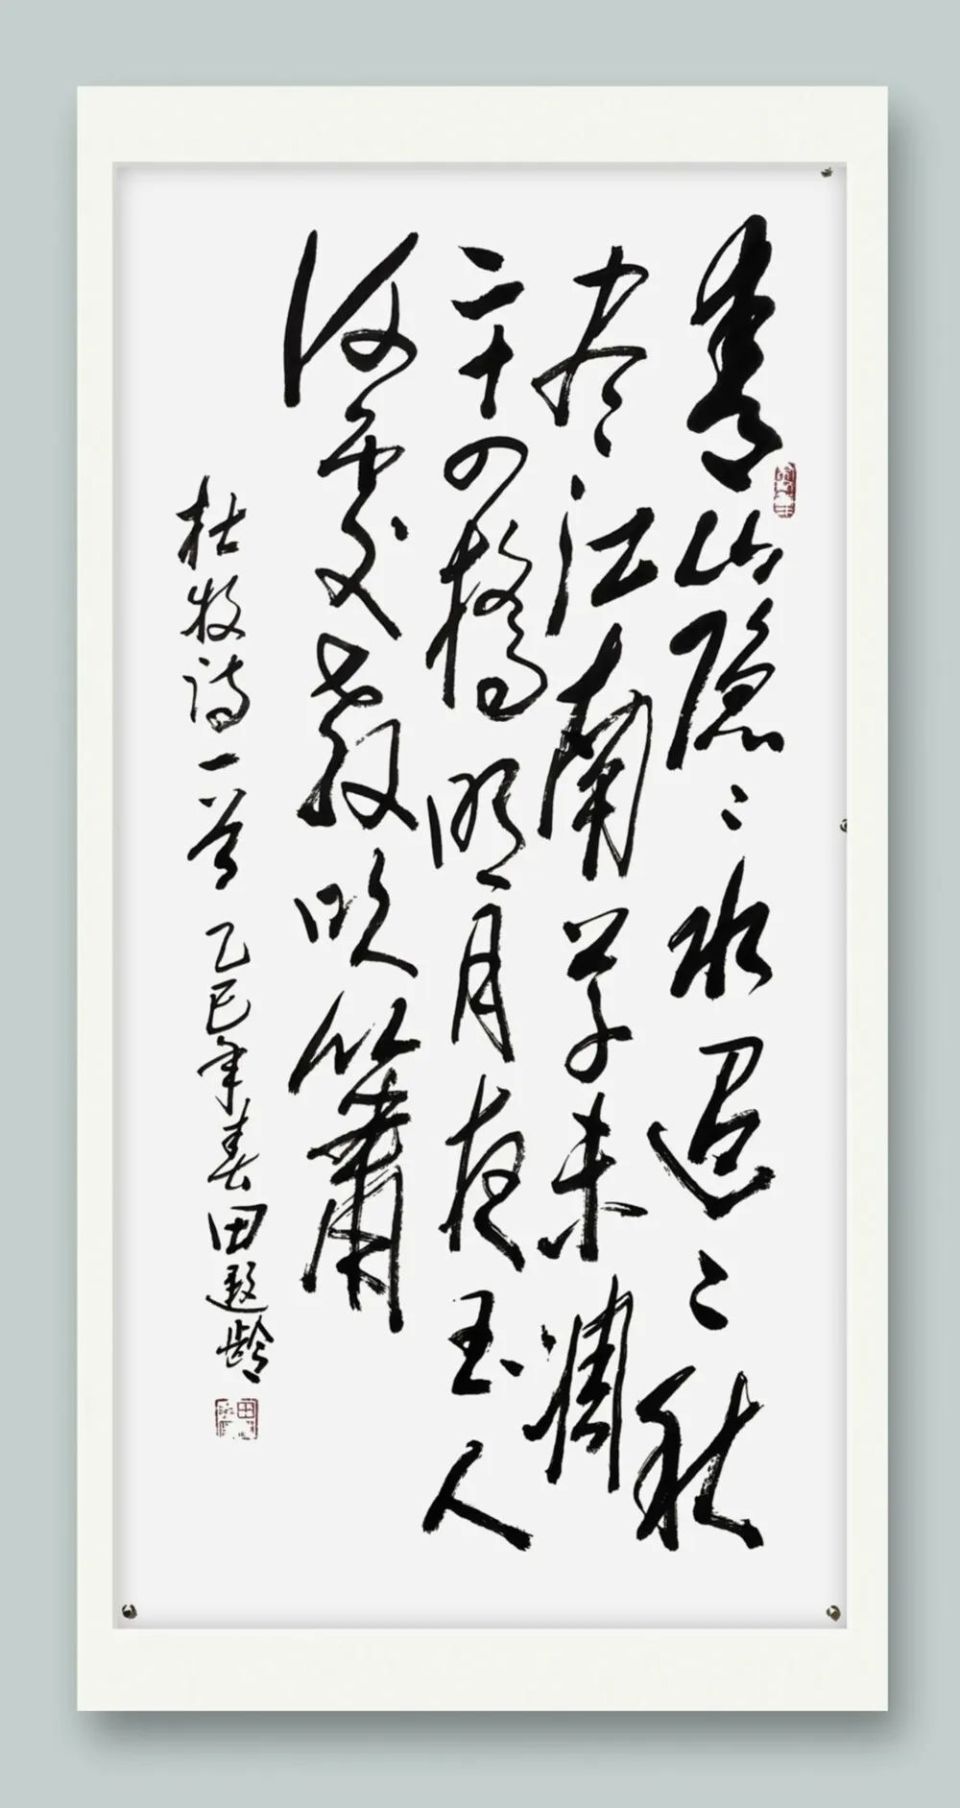 青山隐々水迢々秋
尽江南草未凋
二十四橋明月夜玉人
何處教吹簫
杜牧诗一首 乙巳年春田遐龄